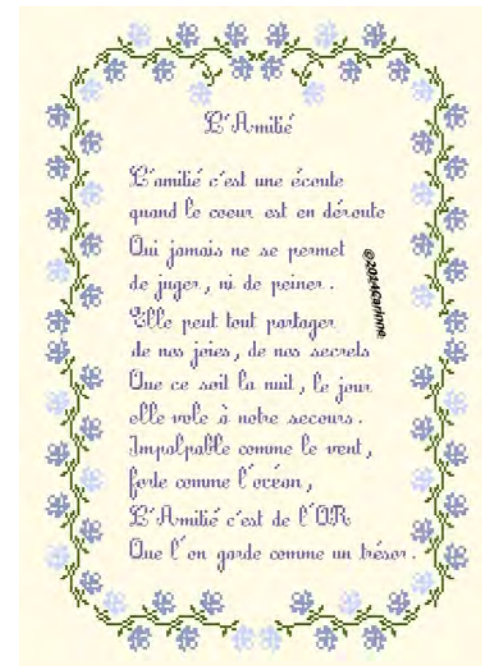 L'Amitié
L'amitié c'est une écoute
quand le coeur est en déroute
Qui jamais ne se permet
de juger, ni de peiner.
Elle peut tout partager
de nos joies, de nos secrets
Que ce soit la nuit, le jour
elle vole à notre secours.
Impalpable comme le vent,
forte comme l'océan,
L'Amitié c'est de l'OR
Que l'on garde comme un trésor.
©2014Carinne